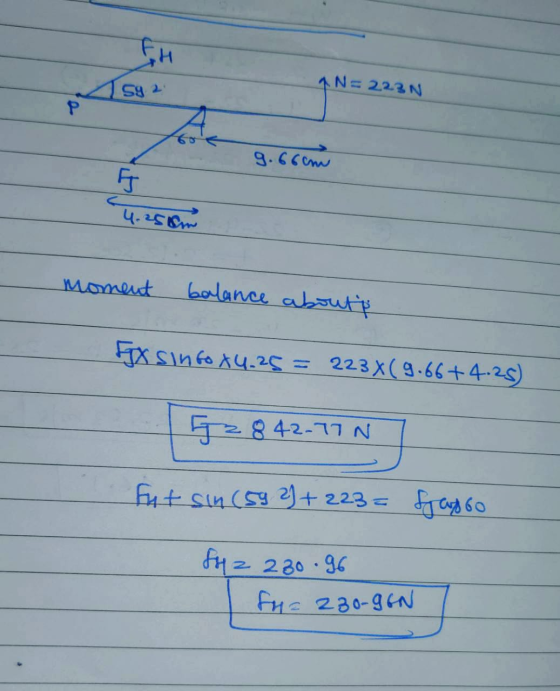 FH
59.2
P
N = 223N
60
9.66cm
FJ
4.25cm
Moment balance about 'P
FJ x sin60 x 4.25 = 223 x (9.66 + 4.25)
FJ = 842.77 N
FH + sin (59.2) + 223 = FJ cos60
FH = 230.96
FH = 230.96N